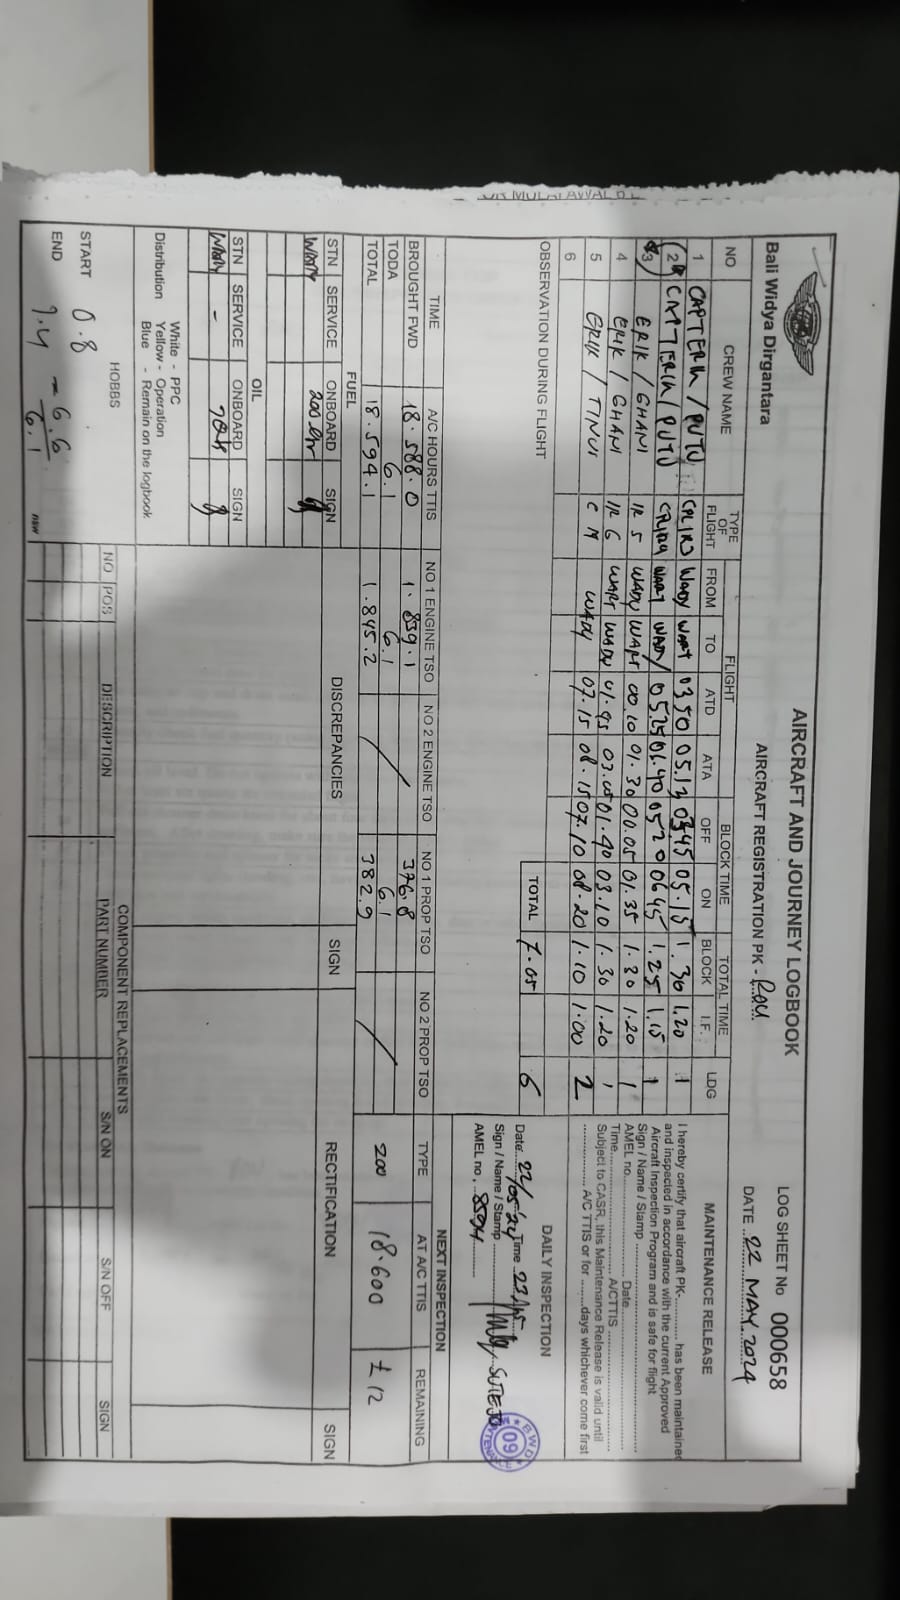 AIRCRAFT AND JOURNEY LOGBOOK
LOG SHEET No 000658
Bali Widya Dirgantara
AIRCRAFT REGISTRATION PK -
DATE 22 MAY 2024
NO CREW NAME TYPE OF FLIGHT FLIGHT BLOCK TIME TOTAL TIME LDG
FROM TO ATD ATA OFF ON BLOCK I.F.
1 CAPT ERIK / PUTU WADY WART 03.50 05.13 03.45 05.15 1.30 1.20 1
2 CAPT ERIK / PUTU WART WADY 05.25 06.40 0520 0645 1.25 1.15 1
3 ERIK / GHANI IR 5 WADY WART 00.10 01.30 00.05 01.35 1.30 1.20 1
4 ERIK / GHANI IR 6 WART WADY 01.45 03.05 01.40 03.10 1.30 1.20 1
5 ERIK / TINUS C M WADY 07.15 08.15 07.10 08.20 1.10 1.00 2
6
OBSERVATION DURING FLIGHT
TOTAL 7.05 6
MAINTENANCE RELEASE
I hereby certify that aircraft PK- has been maintained
and inspected in accordance with the current Approved
Aircraft Inspection Program and is safe for flight
Sign / Name / Stamp
AMEL no. Date
Time A/CTTIS
Subject to CASR, this Maintenance Release is valid until
A/C TTIS or for days whichever come first
DAILY INSPECTION
Date 22/05/24 Time
Sign / Name / Stamp SUTEJO
AMEL no. 8594
BWD 09
TIME A/C HOURS TTIS NO 1 ENGINE TSO NO 2 ENGINE TSO NO 1 PROP TSO NO 2 PROP TSO
BROUGHT FWD 18.588.0 1.839.1 376.8
TODA 6.1 6.1 6.1
TOTAL 18.594.1 1.845.2 382.9
NEXT INSPECTION
TYPE AT A/C TTIS REMAINING
200 18.600 ± 12
FUEL
STN SERVICE ONBOARD SIGN
WADY
OIL
STN SERVICE ONBOARD SIGN
WADY -
DISCREPANCIES SIGN RECTIFICATION SIGN
Distribution White - PPC
Yellow - Operation
Blue - Remain on the logbook
HOBBS
START 0.8
END 7.4 - 6.6
6.1
COMPONENT REPLACEMENTS
NO POS DESCRIPTION PART NUMBER S/N ON S/N OFF SIGN